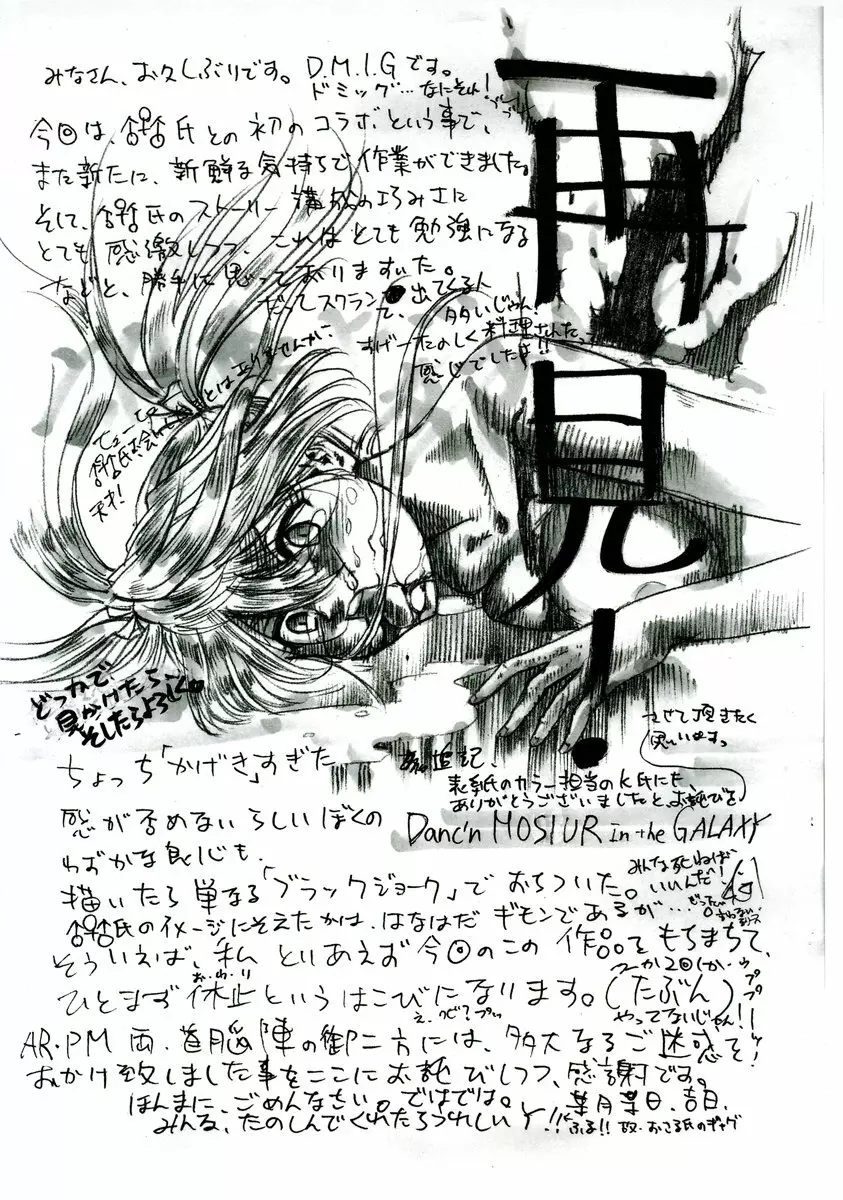 再見!
みなさん、お久しぶりです。D.M.I.Gです。
ドミッグ…なにそれ!
今回は、氏との初のコラボという事で、
また新たに、新鮮な気持ちで作業ができました。
そして、氏のストーリー構成の巧みさに
とても感激しつつ、これはとても勉強になる
などと、勝手に思っておりますいた。
だってスクラン出てくる人
て、多いじゃん!
すげーたのしく料理された
感じでしたよ!!
とはありませんか
天才!
どっかで
見かけたら、
そしたらよろしく。
ちょっち「かげき」すぎた
感が否めないらしいぼくの
わずかな良心も、
追記、
表紙のカラー担当のK氏にも、
ありがとうございましたと、お詫びを
させて頂きたく
思います。
Danc'n MOSIUR in the GALAXY
描いたら単なる「ブラックジョーク」でおちついた。
みんな死ねば
いいんだ!
氏のイメージにそえたかは、はなはだギモンであるが…
そういえば、私とりあえず今回のこの作品をもちまして、
お・わ・り
ひとまず休止というはこびになります。(たぶん)
やってないじゃん!!
AR・PM両・首脳陣の御二方には、多大なるご迷惑を
おかけ致しました事をここにお詫びしつつ、感謝です。
ほんまに、ごめんなさい。ではでは。
葉月葉日、吉日、
みんな、たのしんでくれたらうれしいY!!